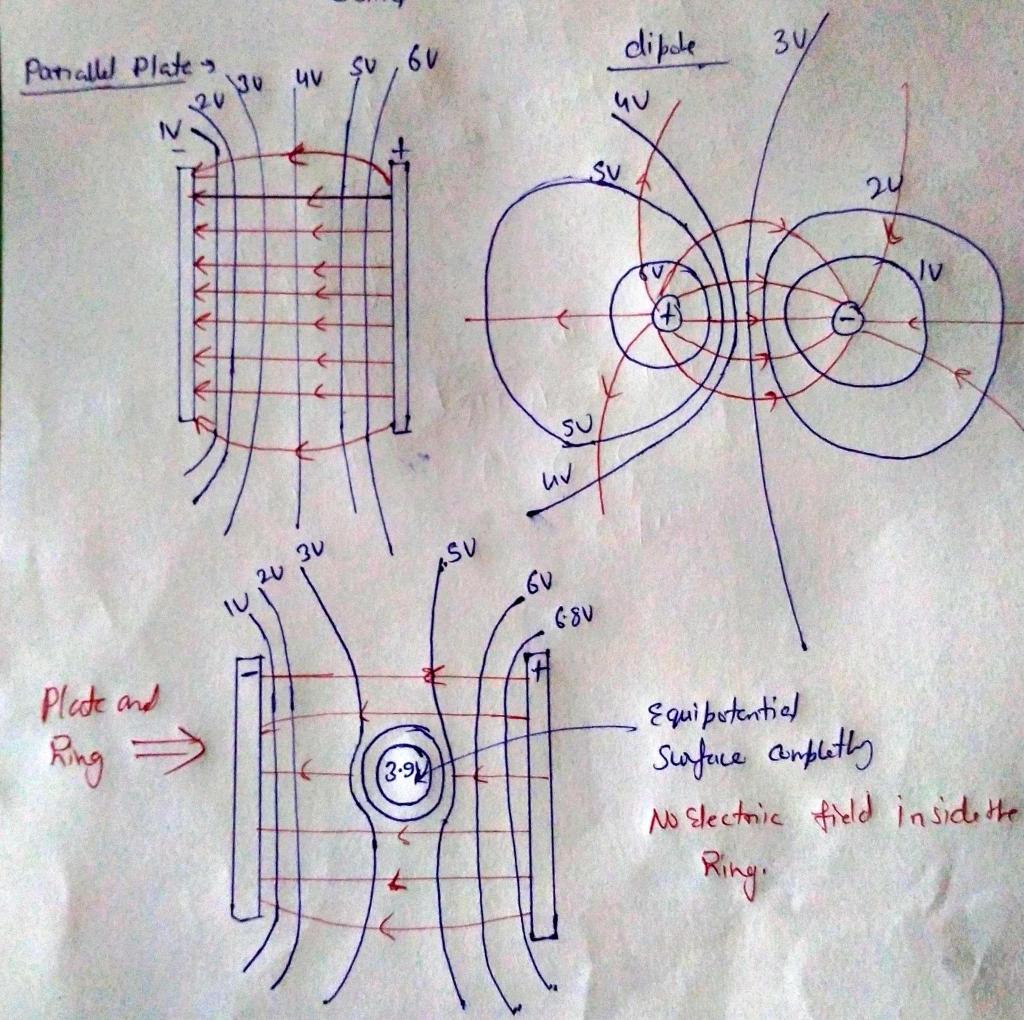 Parallel Plate →
1V
2V
3V
4V
5V
6V
-
+
dipole
3V
4V
5V
6V
+
2V
1V
-
5V
4V
1V
2V
3V
5V
6V
6.8V
-
+
3.9V
Plate and
Ring
Equipotential
Surface completly
No Electric field inside the
Ring.